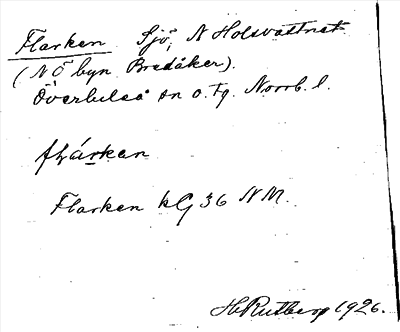 Flarken Sjö, N Holsvattnet
(N Ö byn Bredåker).
Överluleå sn o. tg. Norrb. l.
flárkan
Flarken kG 36 NM.
H Rutberg 1926.